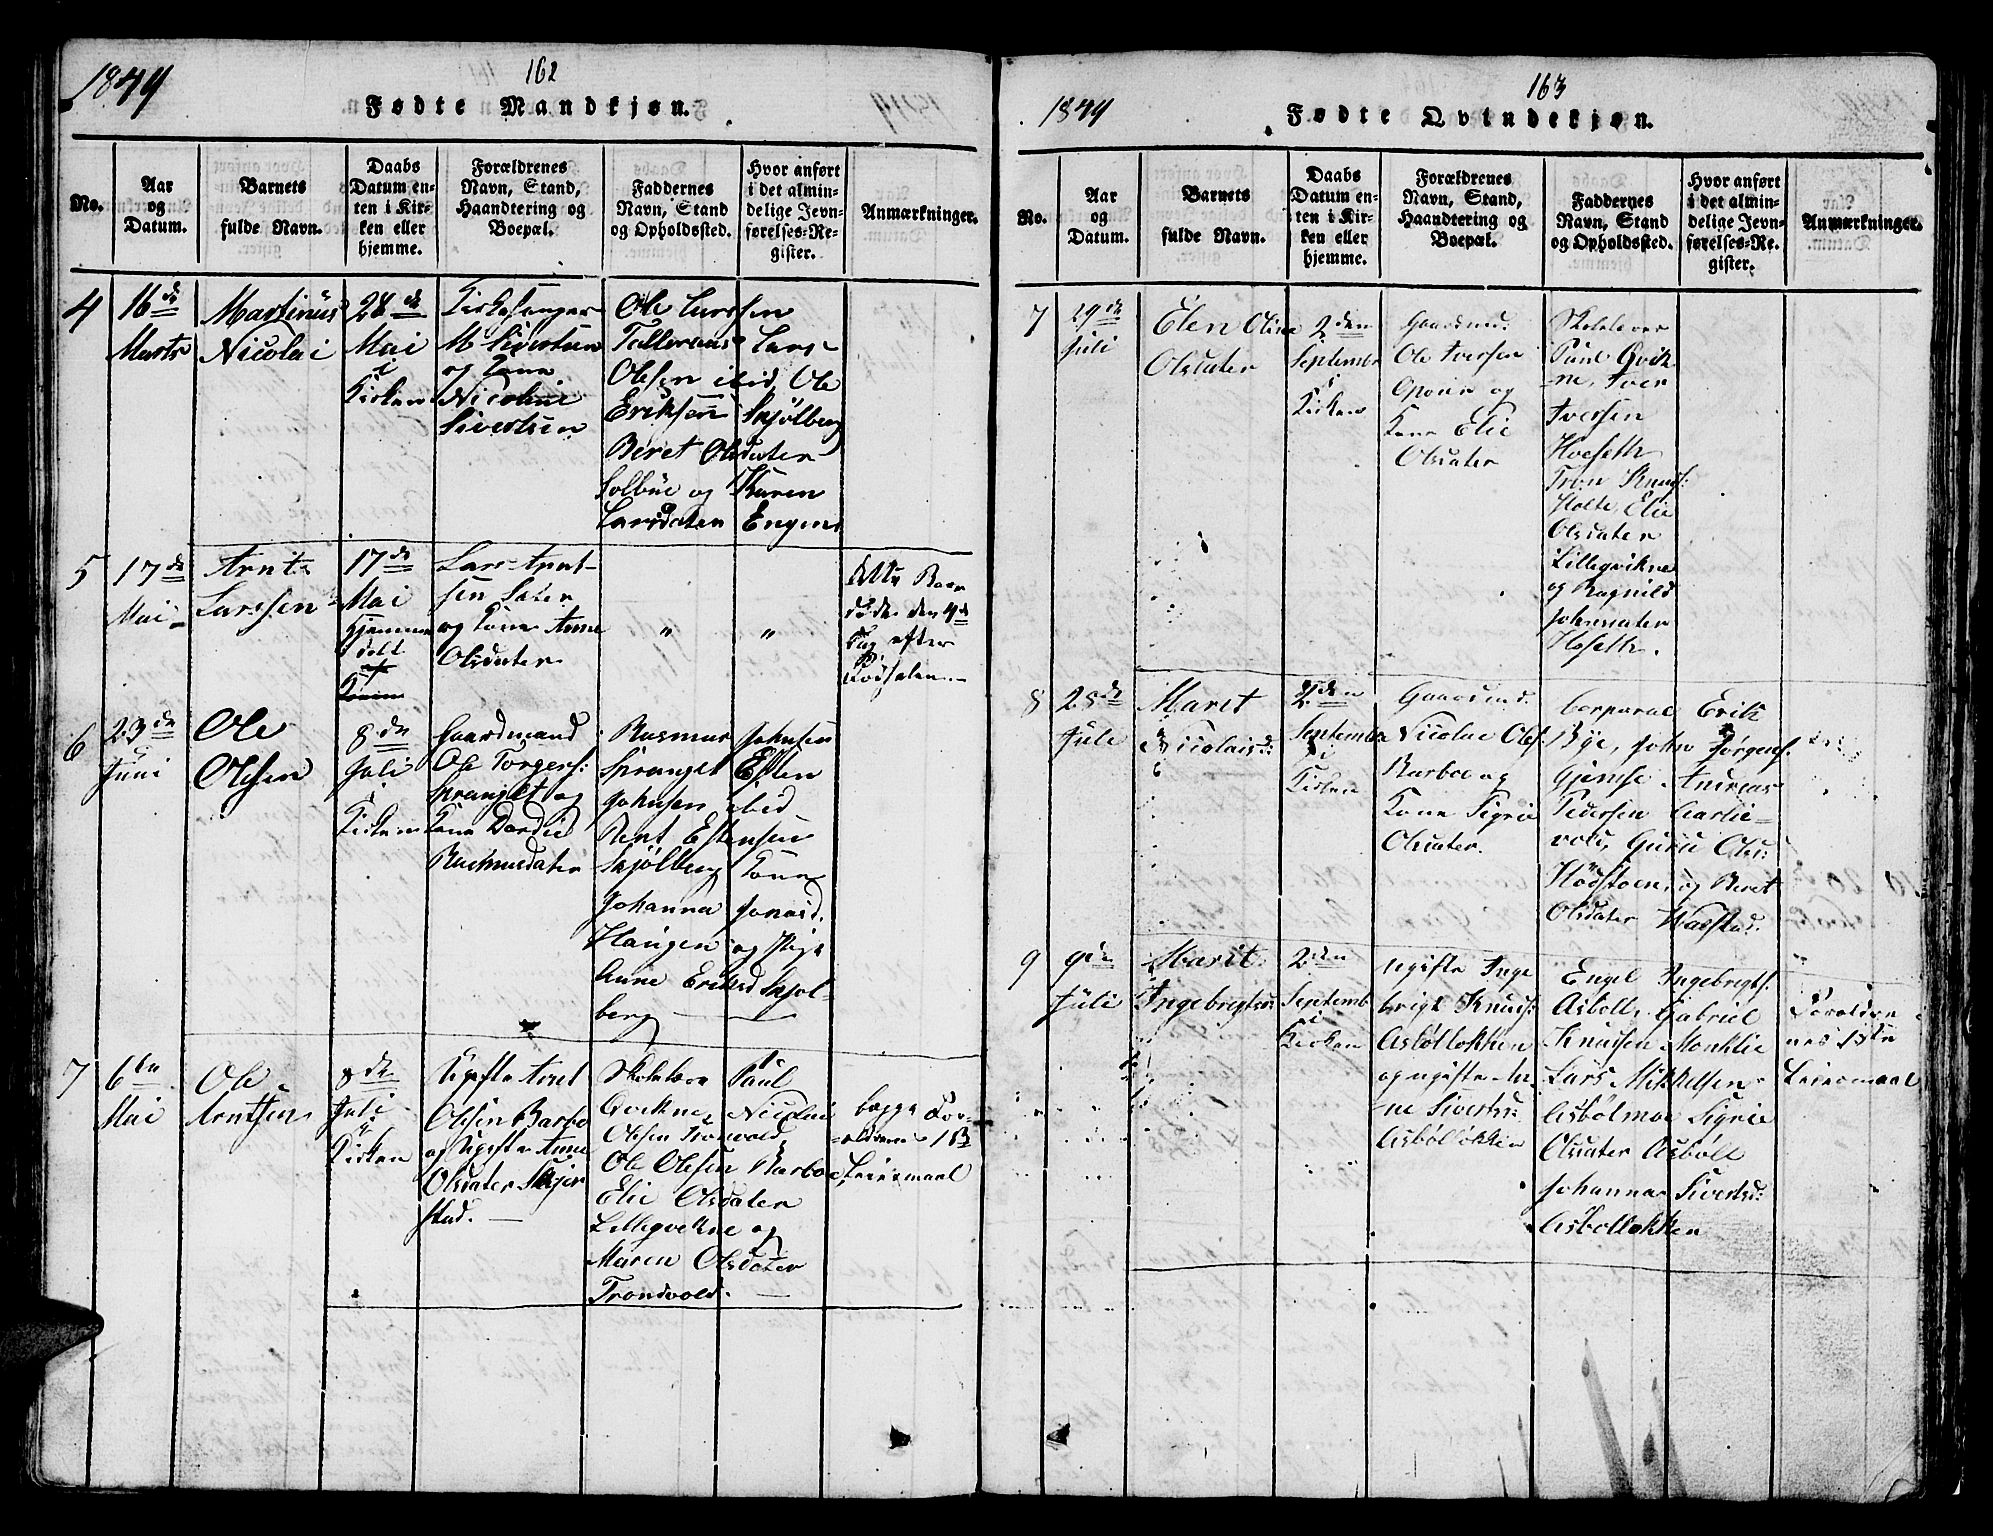 1844
162
Fødte Mandkjøn.
No.
Aar og Datum.
Barnets fulde Navn.
Daabs Datum enten i Kirken eller hjemme.
Forældrenes Navn, Stand, Haandtering og Boepæl.
Faddernes Navn, Stand og Opholdssted.
Hvor anført i det almindelige Jevnførelses-Register.
Anmærkninger.
4
16de
Marts
Martinus
Nicolai
28de
Mai
i
Kirken
Kirkesanger
M Sivertsen
og Kone
Nicoline
Sivertsen
Ole Larssen
Lars
Olsen ibid, Ole
Eriksen Skjølberg
Beret Olsdater
Solbue og Karen
Larsdater Engen
5
17de
Mai
Arnt
Larssen
17de
Mai
Hjemme
døbt
Lars Arnt-
sen Sæter
og Kone Anne
Olsdater
"
"
dette Barn
døde den 4de
Dag efter
Fødselen.
6
23de
Juni
Ole
Olsen
8de
Juli
i
Kirken
Gaardmand
Ole Torgers:
Spranget og
Kone Dordie
Rasmusdater
Rasmus Johnsen
Spranget Esten
Johnsen ibid
Arnt Estensen
Skjølberg Kone
Johanna Jonasd.
Haugen og Pige
Anne Eriksd Skjøl-
berg
7
6te
Mai
Ole
Arntsen
8de
Juli
i
Kirken
Ugifte Arnt
Olsen Barbo
og Ugifte Anne
Olsdater Skjer
stad.
Skolelærer Paul
Qvikne, Nicolai
Olsen Tronvold,
Ole Olsen Barboe,
Elie Olsdater
Lillegvikne og
Maren Olsdater
Trondvold.
begge For-
ældrenes 1ste
Leiermaal
1844
163
Fødte Qvindekjøn.
No.
Aar og Datum.
Barnets fulde Navn.
Daabs Datum enten i Kirken eller hjemme.
Forældrenes Navn, Stand, Haandtering og Boepæl.
Faddernes Navn, Stand og Opholdssted.
Hvor anført i det almindelige Jevnførelses-Register.
Anmærkninger.
7
29de
Juli
Elen Oline
Olsdater
2den
September
i
Kirken
Gaardmd.
Ole Iversen
og
Kone Elie
Olsdater
Skolelærer
Paul Qvik
ne, Iver
Iversen
Hoseth
Tron Knuds:
Holte, Elie
Olsdater
Lillegvikne
og Ragnild
Johnsdater
Hoseth.
8
25de
Juli
Maret
Nicolaisd:
2den
September
i
Kirken
Gaardmd.
Nicolai Ols:
Barboe og
Kone Sigrie
Olsdater.
Corporal Erik
Bye, John Jørgens:
Gjemse Andreas
Pedersen Carlie-
vold, Guru Ols:
og Beret
Olsdater Walstad.
9
9de
Juli
Marit
Ingebrigtsd:
2den
Septemb
i
Kirken
ugifte Inge
brigt Knuds:
Asbølløkken
og ugifte An
ne Sivertsd:
Asbøløkken
Engel Ingebrigts.
Asbøll, Gabriel
Knudsen Monklie
Lars Mikkelsen
Asbølmoe Sigrie
Olsdater Asbøll
Johanna Sivertsd:
Asbøllokken
Foreldre
nes 1ste
Leiermaal